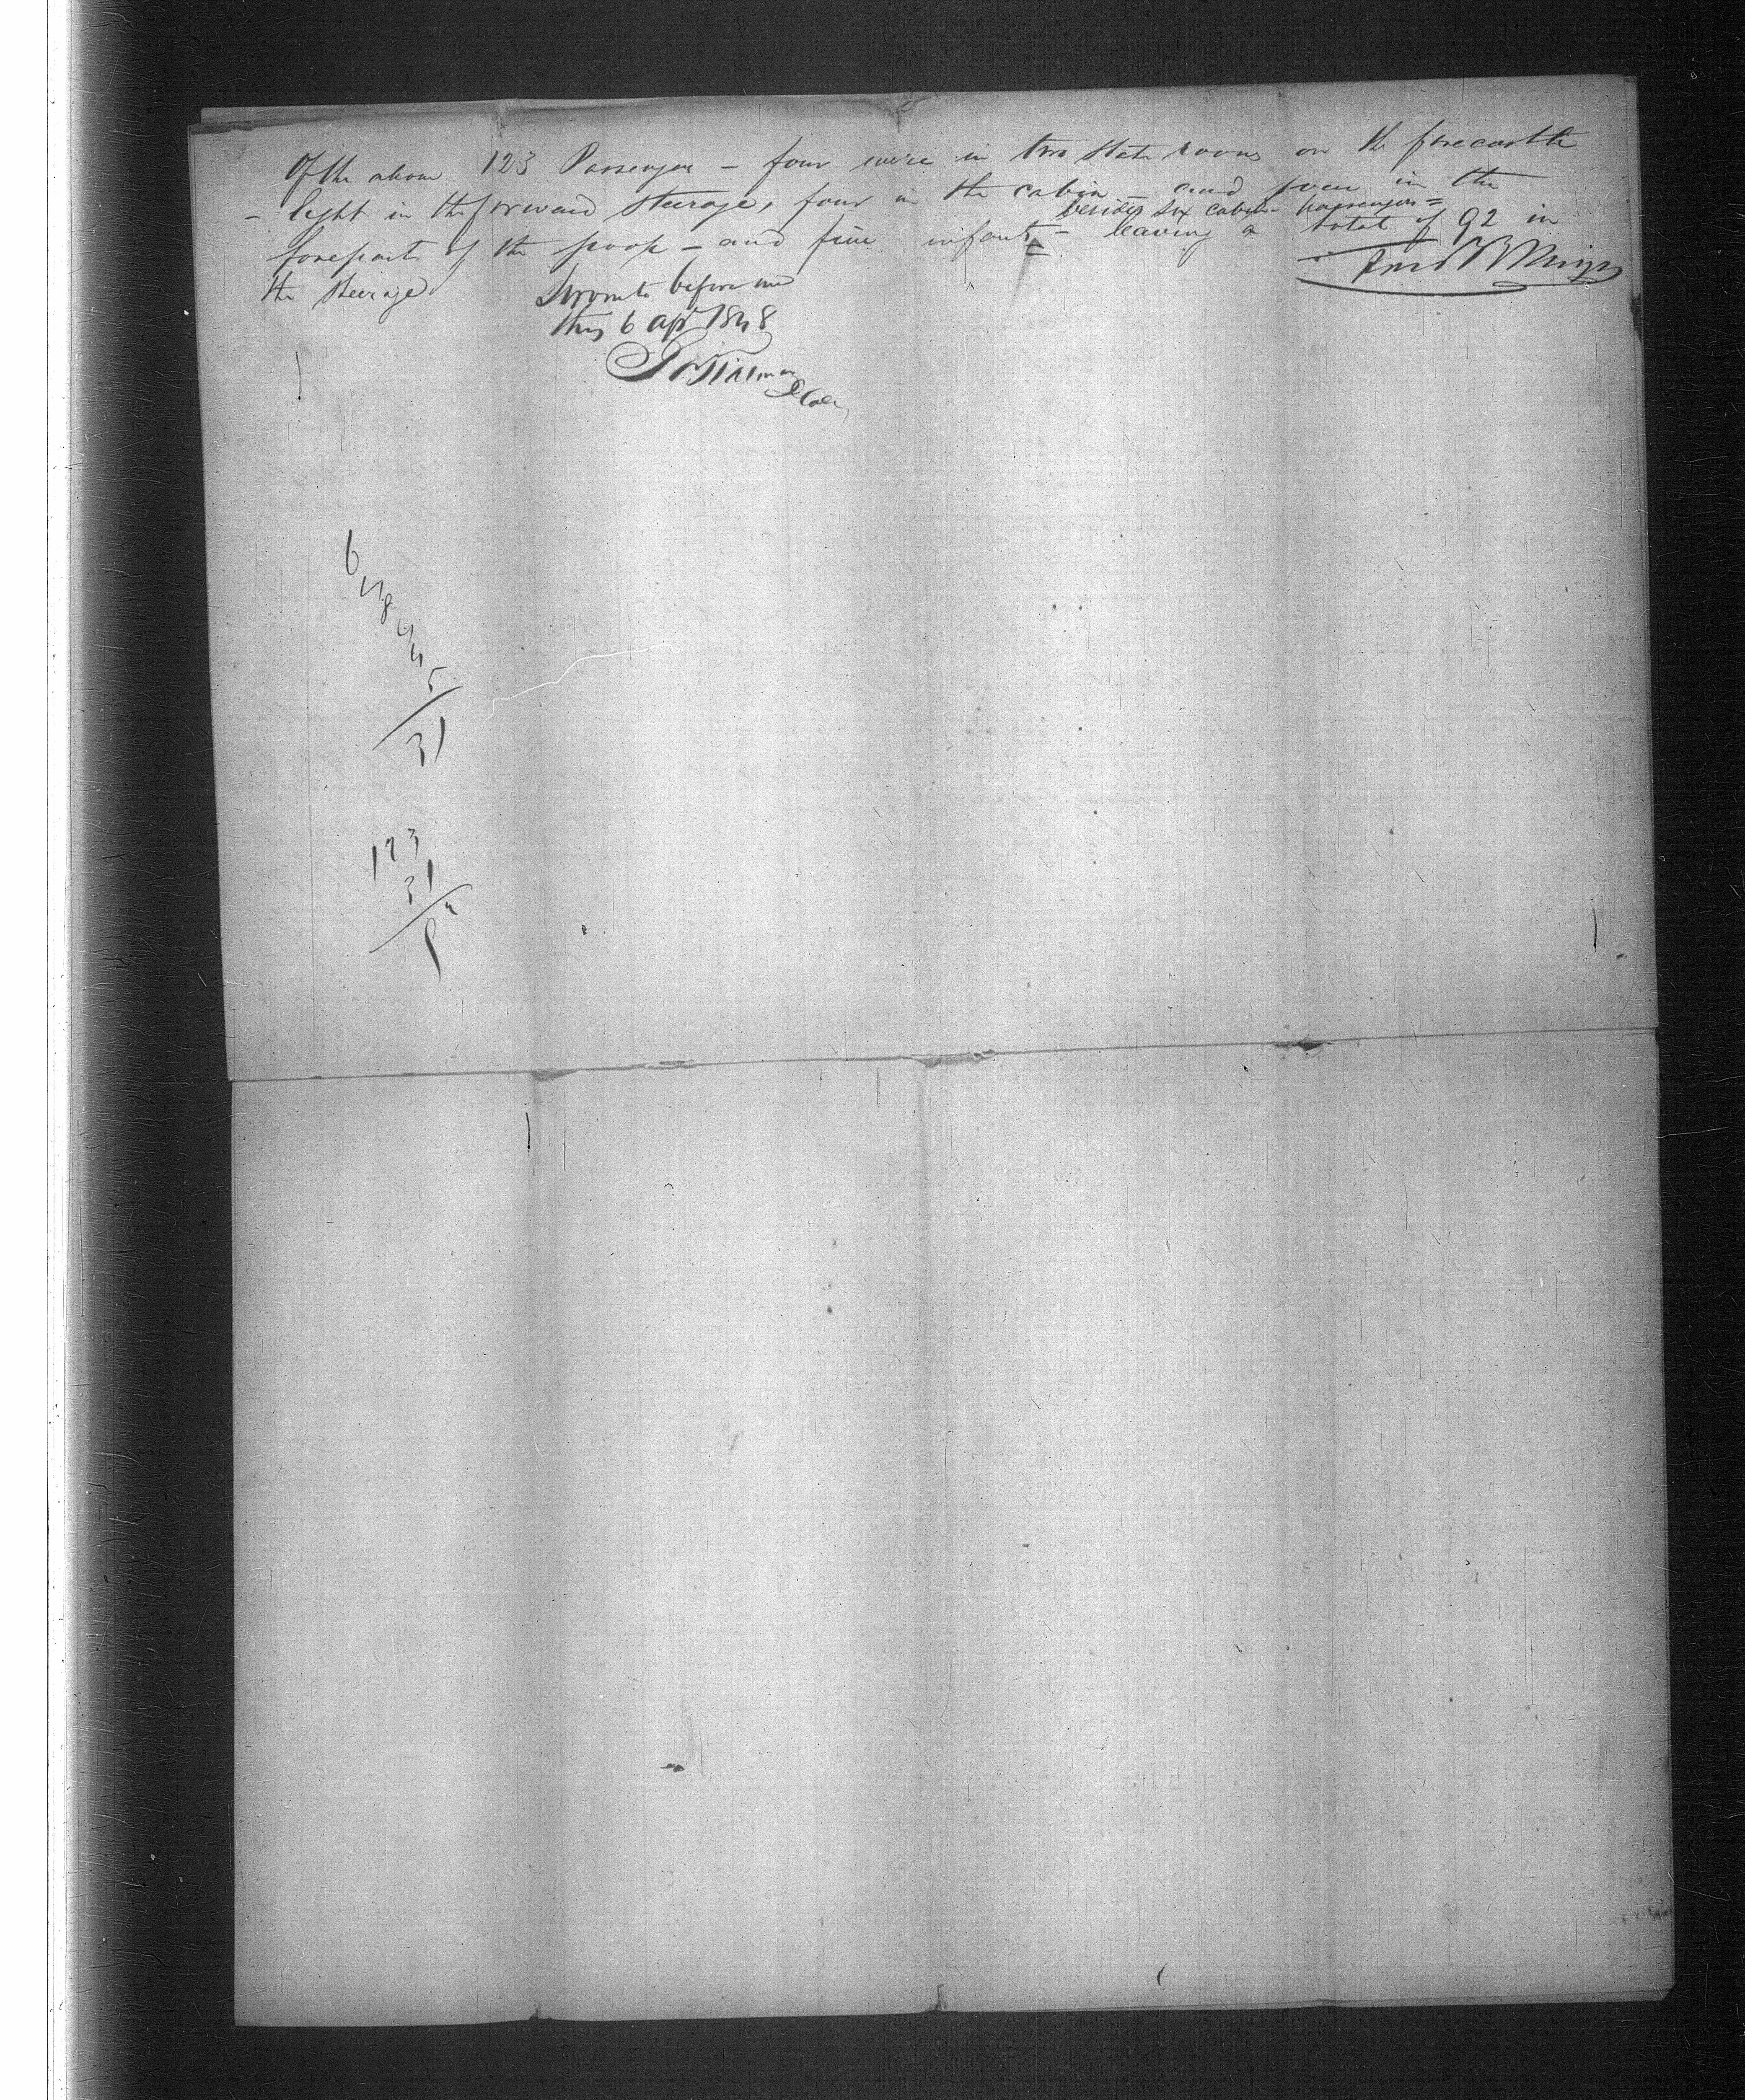 Of the above 123 Passengers – four were in two State rooms on the forecastle
– Eight in the forward Steerage, four in the cabin – and four in the
besides six cabin passengers =
foreparts of the poop – and five infants – leaving a total of 92 in
the Steerage
Sworn to before me
this 6 apr 1848
6
4
8
4
4
5
31
123
31
92